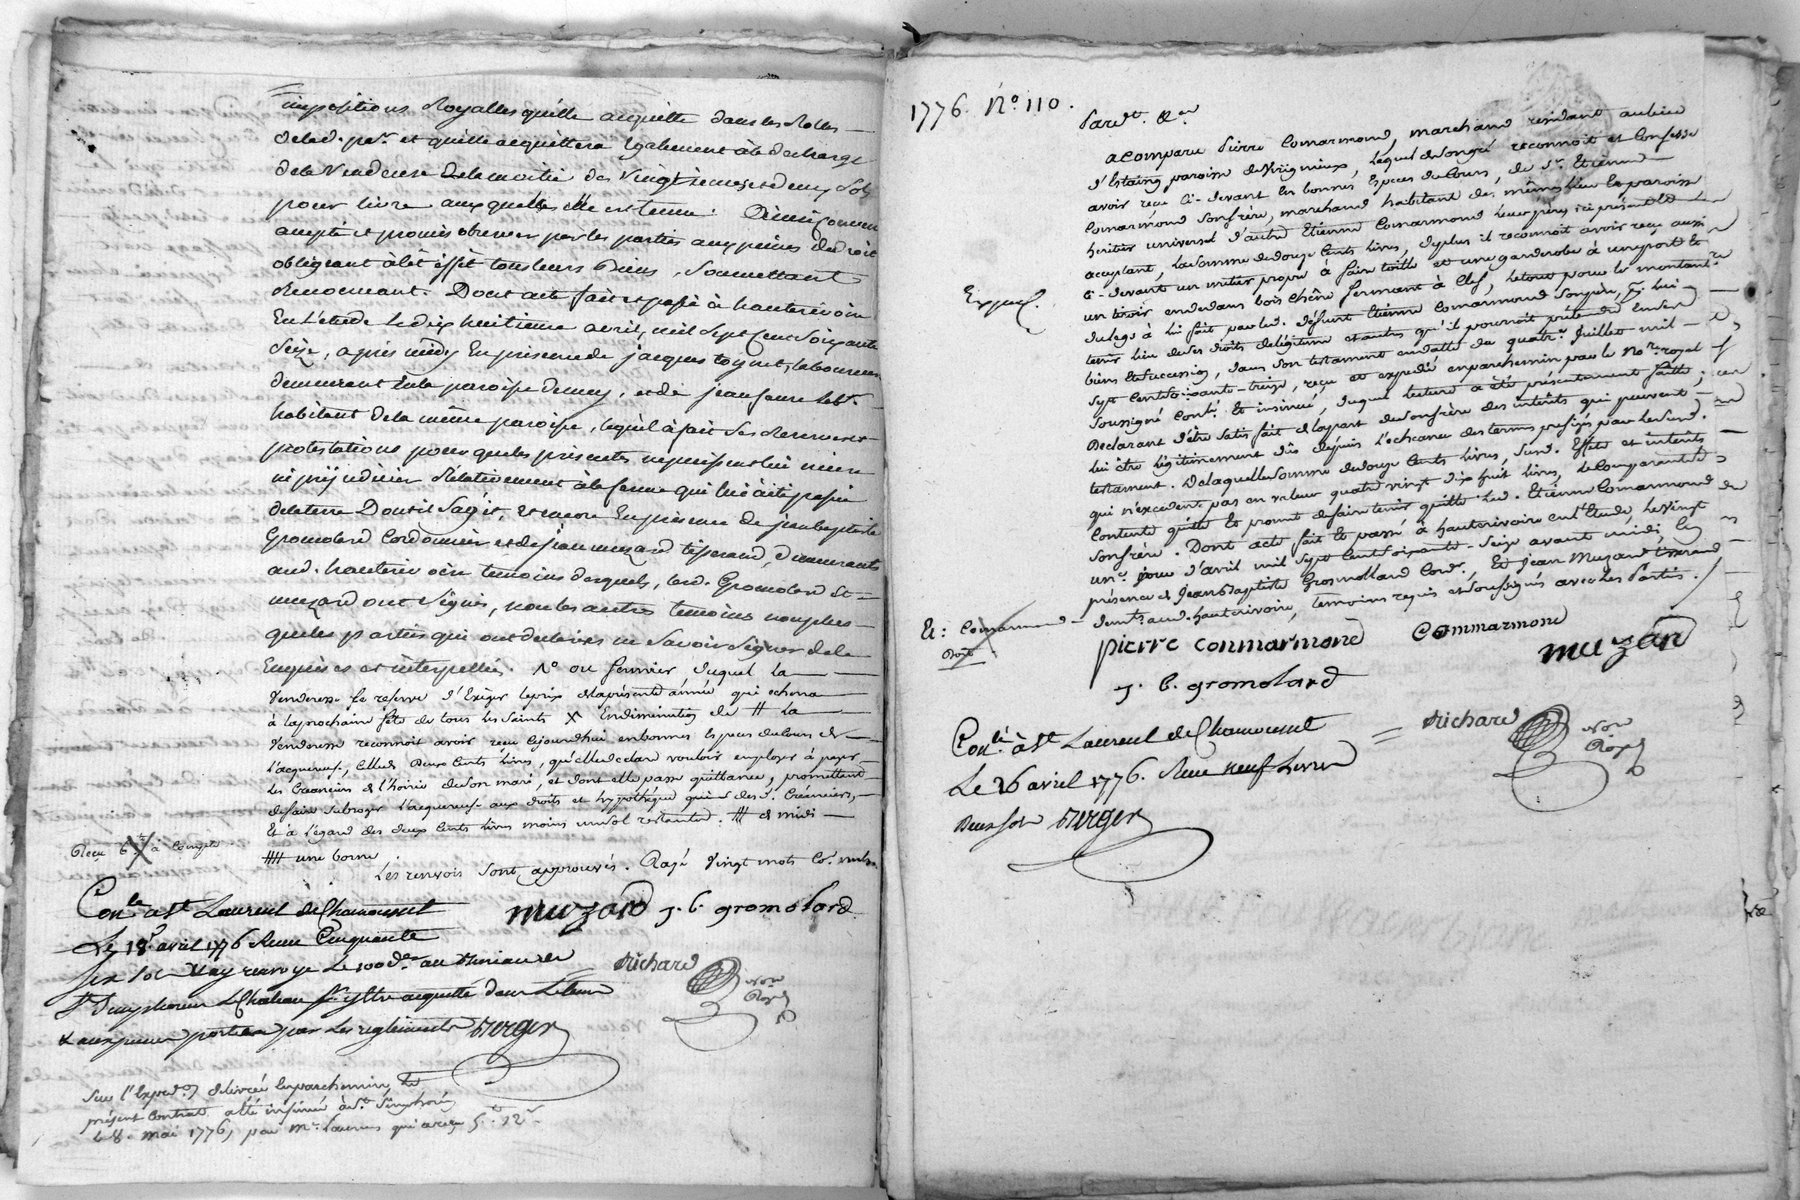 impositions Royalles qu'elle acquitte dans les Rolles
de lad. psse. et qu'elle acquittera Egalement à la decharge
de la Venderesse de la moitié des Vingtiemes et deux Sols
pour livre auxquelles elle est tenue.
accepté et promis observer par les parties aux peines de droit
obligeant à cet effet tous leurs Biens, Soumettant
Renonceant. Dont acte fait et passé à hauterivoire
En L'etude Le dix huitieme avril, mil Sept Cent Soixante
Seize, après midy En presence de jacques toynet, laboureur
demeurant En la paroisse de mey, et de jean
habitant de la même paroisse, lequel à fait Ses Reserves et
protestations pour que les presentes ne puissent lui nuire
ni prejudicier Relativement à la ferme qui lui à eté passée
de la terre Dont il S'agit, et encore En presence de jean baptiste
Gromolard Cordonnier et de jean muzard tisserand, demeurants
aud. hauterivoire temoins desquels, lesd. Gromolard et
muzard ont Signés, non les autres temoins non plus
que les parties qui ont declarées ne Savoir Signer de ce
Enquises et interpellés. N° ou fermier duquel la
Venderesse Se reserve d'Exiger le prix de la présente année qui echerra
à la prochaine fête de tous les Saints X En diminution de # La
Venderesse reconnoit avoir reçu cejourdhui en bonnes Especes du Cours de
L'acquereuse, Celle de Deux Cents Livres, qu'elle declare vouloir employer à payer
Les Creanciers de l'hoirie de Son mari, et dont elle passe quittance, promettant
de faire Subroger L'acquereuse aux droits et hypothèque qui desd. Créanciers,
Et à L'égard des deux Cents Livres moins un Sol restantes. ## et midi
### une borne,
Les renvois Sont approuvés. Rayé Vingt mots
Reçu 6 à Compte
Conlé à St Laurent de Chamousset
Le 18 avril 1776 Reçu Cinquante
Six Sols
St Simphorien Le Chatel
par Les reglements Verger
muzard j. b. gromolard
Richard Nore Royal
Sur l'Expedon délivrée En parchemin, Le
présent Contrat a été insinué à St. Simphorien
Le 8. mai 1776, par Mr. qui a reçu
1776. No. 110.
Pardt. &a
a Comparu Pierre Comarmond, marchand résidant au lieu
d'Estaing paroisse de Virigneux, Lequel de Son gré reconnoit et Confesse
avoir reçu Ci-devant En bonnes Especes du Cours, de Sr. Etienne
Comarmond Son frère, marchand habitant des mêmes lieu Et paroisse
heritier universel d'autre Etienne Comarmond Leur père, ici présent Et
acceptant, La Somme de douze Cents livres, de plus il reconnoit avoir reçu aussi
Ci-devant un métier propre à faire toille et une garderobe à une porte Et
un tiroir en dedans bois chêne fermant à Clef, Le tout pour Le montant
du legs à lui fait par led. défunt Etienne Comarmond Son père, pr. lui
tenir lieu de Ses droits de legitime et autres qu'il pourroit pretendre En Ses
biens Et Succession, dans Son testament en datte du quatre Juillet mil
Sept Cent Soixante-treize, reçu et expedié en parchemin par le Nore. royal
Soussigné Conlé Et insinué, duquel Lecture a été présentement faitte;
Declarant d'être Satisfait de la part de Son frère des intérêts qui peuvent
lui être légitimement dûs depuis L'echeance des termes prefixés par led.
testament. De laquelle Somme de douze Cents Livres, Susd. Effets et interêts
qui n'excedent pas en valeur quatre vingt dix huit livres, le Comparant Se
Contente quitte Et promet de faire tenir quitte Led. Etienne Comarmond
Son frère. Dont acte fait Et passé à hauterivoire En l'Etude Le vingt
une. jour d'avril mil Sept Cent Soixante-Seize avant midi, En
présence de Jean Baptiste Gromollard Cordr., Et Jean Muzard tisserand,
demts. aud. hauterivoire, temoins requis et Soussignés avec Les Parties.
Exped.
E: Comarmond
pierre conmarmond Commarmond
muzard
j. b. gromolard
Conlé à St Laurent de Chamousset
Le 26 avril 1776. Reçu neuf Livres
Deux Sols Verger
Richard Nore Royal